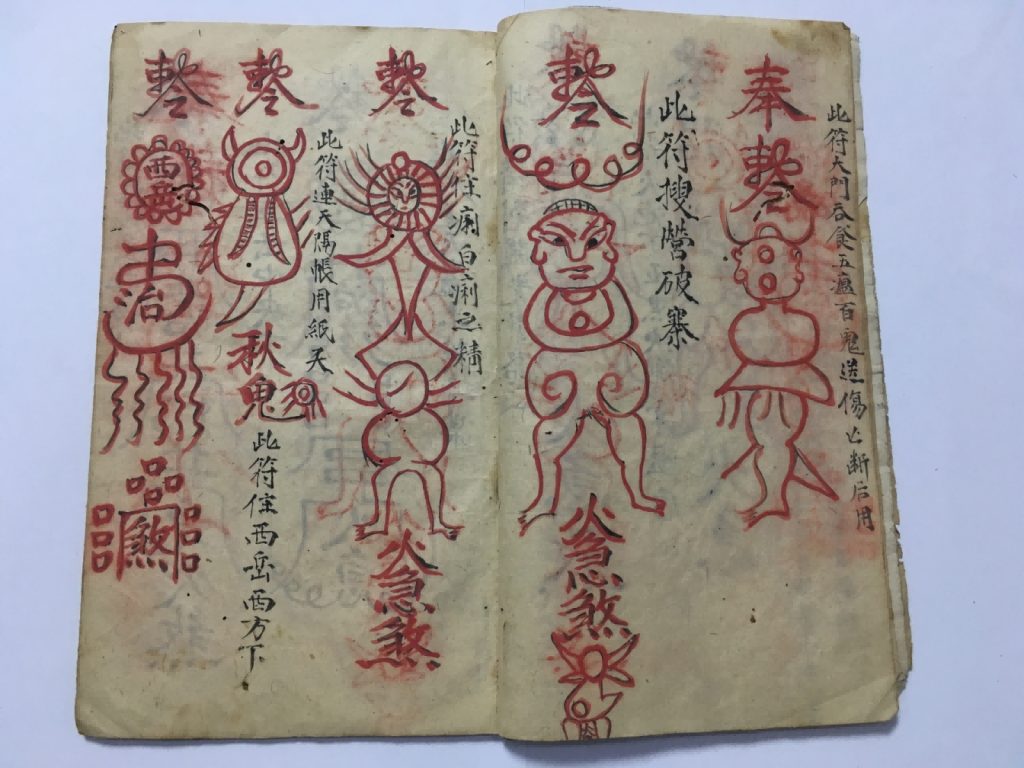 奉
此符大門吞食五瘟百鬼送傷亡断后用
此符搜營破寨
急煞
此符住痢白痢之精
急煞
此符連天隔帳用紙天
秋鬼
此符住西岳西方下
西岳
治
煞